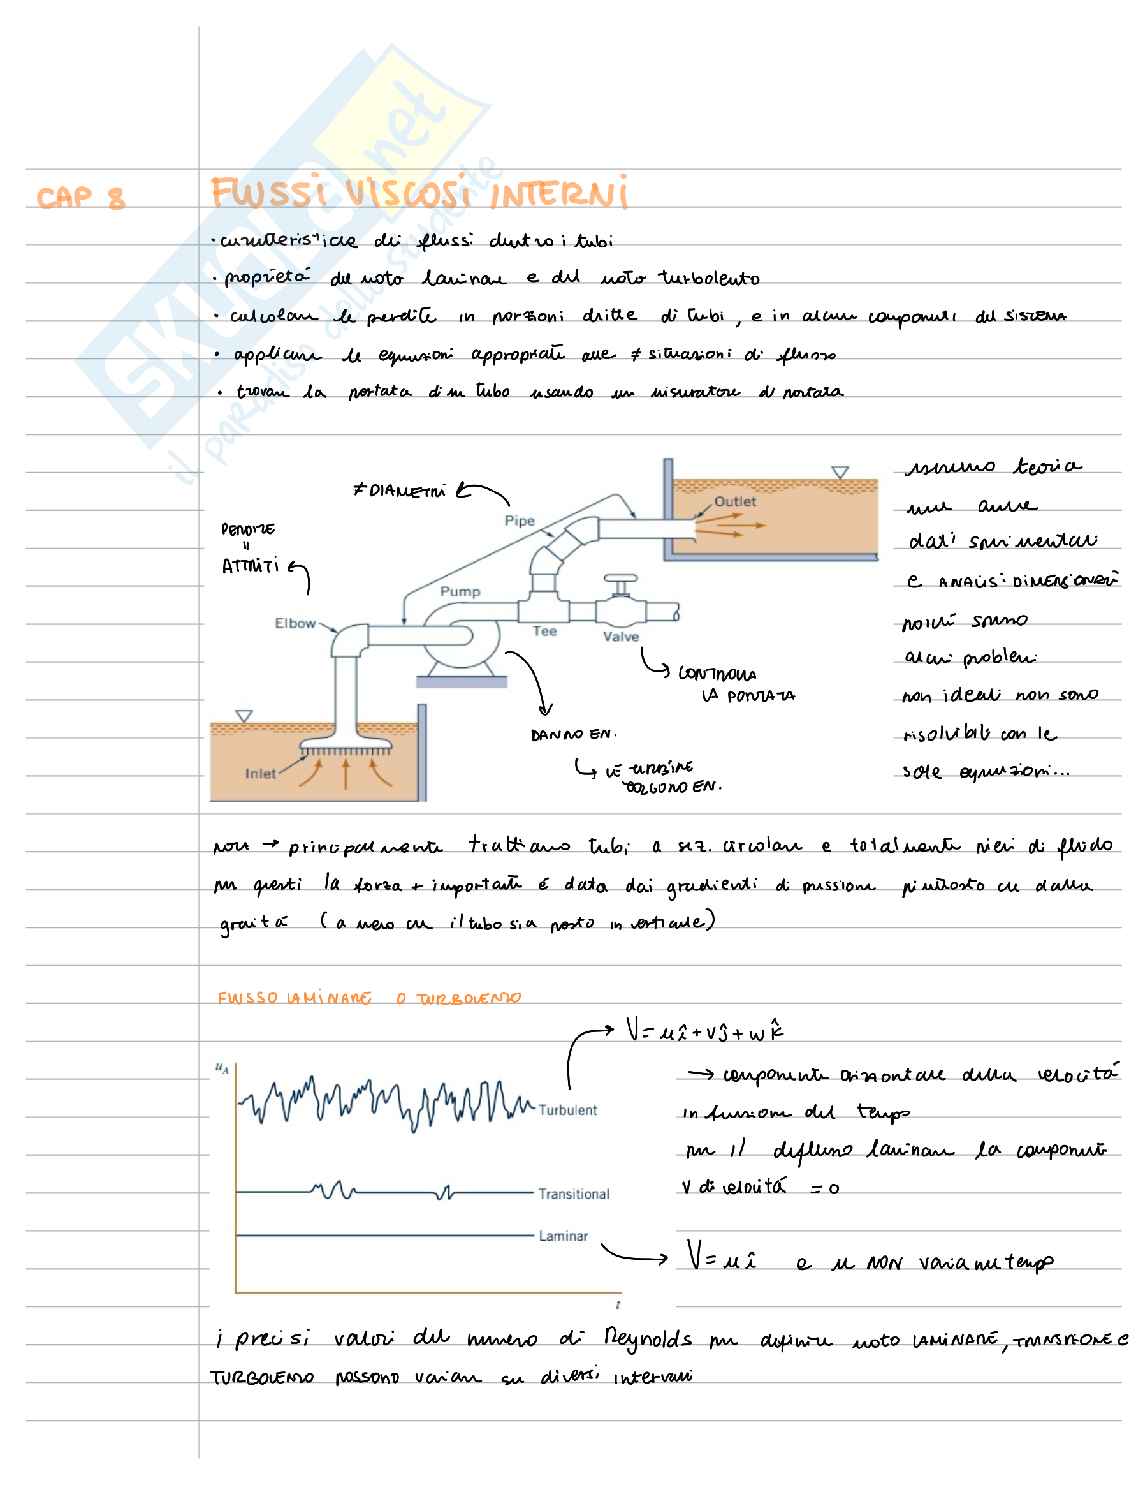 SKUOLA.net
il paradiso dello studente
CAP 8
FLUSSI VISCOSI INTERNI
· caratteristiche dei flussi dentro i tubi
· proprietà del moto laminare e del moto turbolento
· calcolare le perdite in porzioni dritte di tubi, e in alcuni componenti del SISTEMA
· applicare le equazioni appropriate alle ≠ situazioni di flusso
· trovare la portata di un tubo usando un misuratore di portata
≠ DIAMETRI
Pipe
Outlet
PERDITE
"
ATTRITI
Pump
Elbow
Tee
Valve
CONTROLLA
LA PORTATA
DANNO EN.
LE TURBINE
TOLGONO EN.
Inlet
teoria
ma anche
dati sperimentali
e ANALISI DIMENSIONALI
poiché spesso
alcuni problemi
non ideali non sono
risolvibili con le
sole equazioni...
NOTA → principalmente trattiamo tubi a sez. circolare e totalmente pieni di fluido
per questi la forza + importante è data dai gradienti di pressione piuttosto che dalla
gravità (a meno che il tubo sia posto in verticale)
FLUSSO LAMINARE O TURBOLENTO
V = uî + vĵ + wk̂
u_A
→ componente orizzontale della velocità
in funzione del tempo
Turbulent
per il deflusso laminare la componente
v di velocità = 0
Transitional
Laminar
V = uî e u NON varia nel tempo
t
i precisi valori del numero di Reynolds per definire moto LAMINARE, TRANSIZIONE e
TURBOLENTO possono variare su diversi intervalli